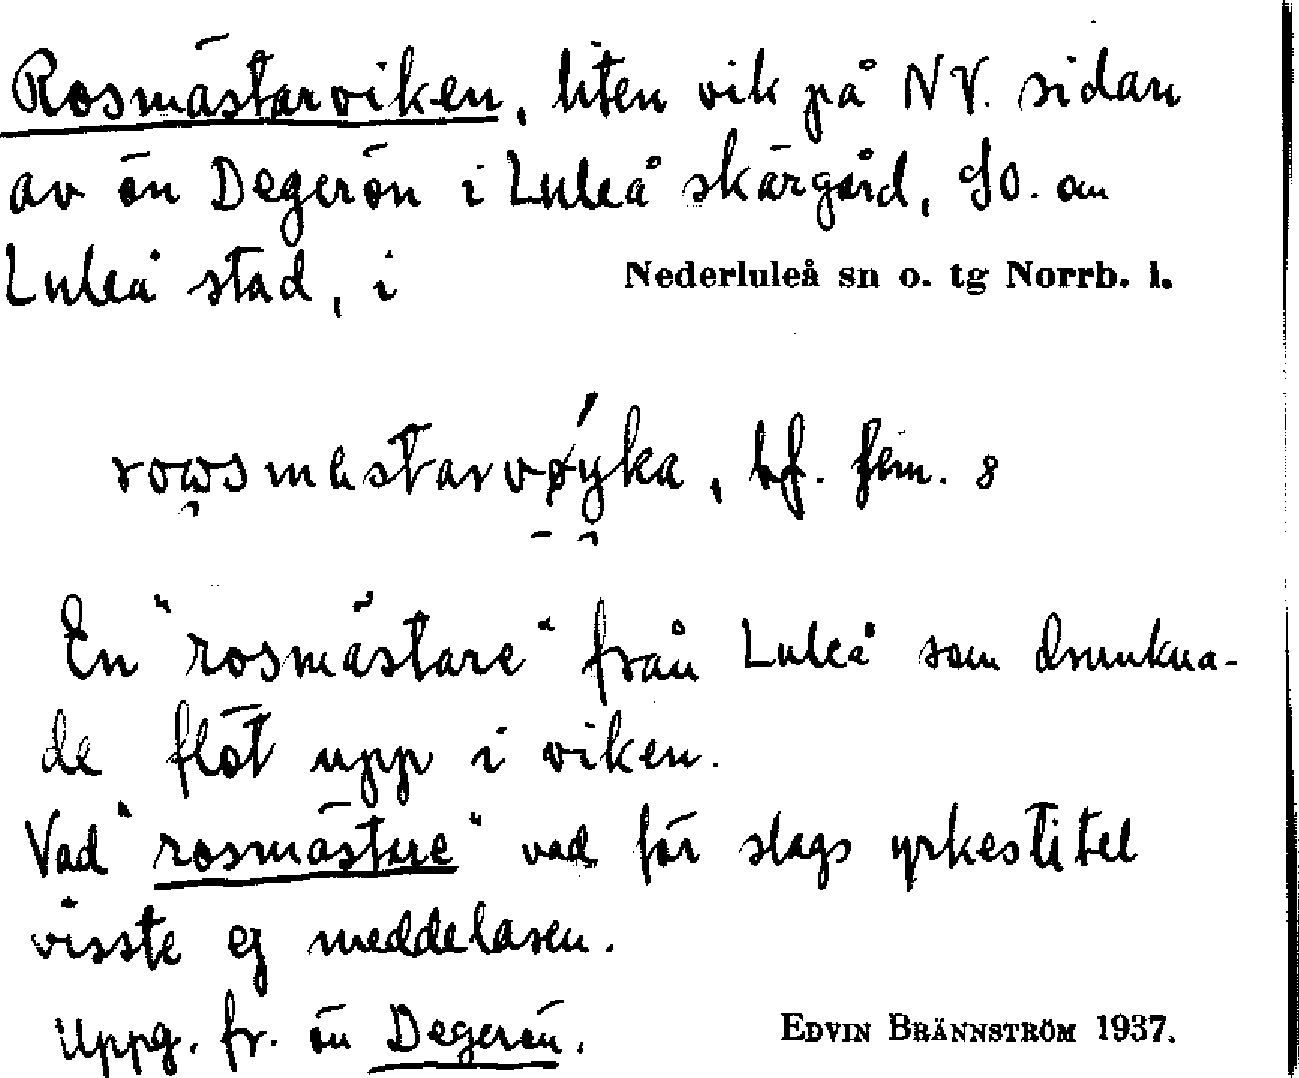 Rosmästarviken, liten vik på NV. sidan
av ön Degerön i Luleå skärgård, SO. om
Luleå stad, i Nederluleå sn o. tg Norrb. l.
bf. fem. 8
En "rosmästare" från Luleå som drunkna-
de flöt upp i viken.
Vad "rosmästare" vad för slags yrkestitel
visste ej meddelaren.
Uppg. fr. ön Degerön.
EDVIN BRÄNNSTRÖM 1937.